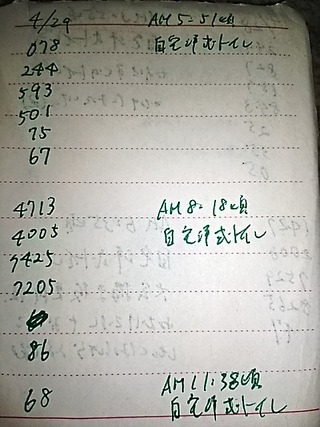 4/29 AM5:51頃
078 自宅洋式トイレ
244
593
501
75
67
4713 AM8:18頃
4005 自宅洋式トイレ
7425
7205
86
AM11:38頃
68 自宅洋式トイレ